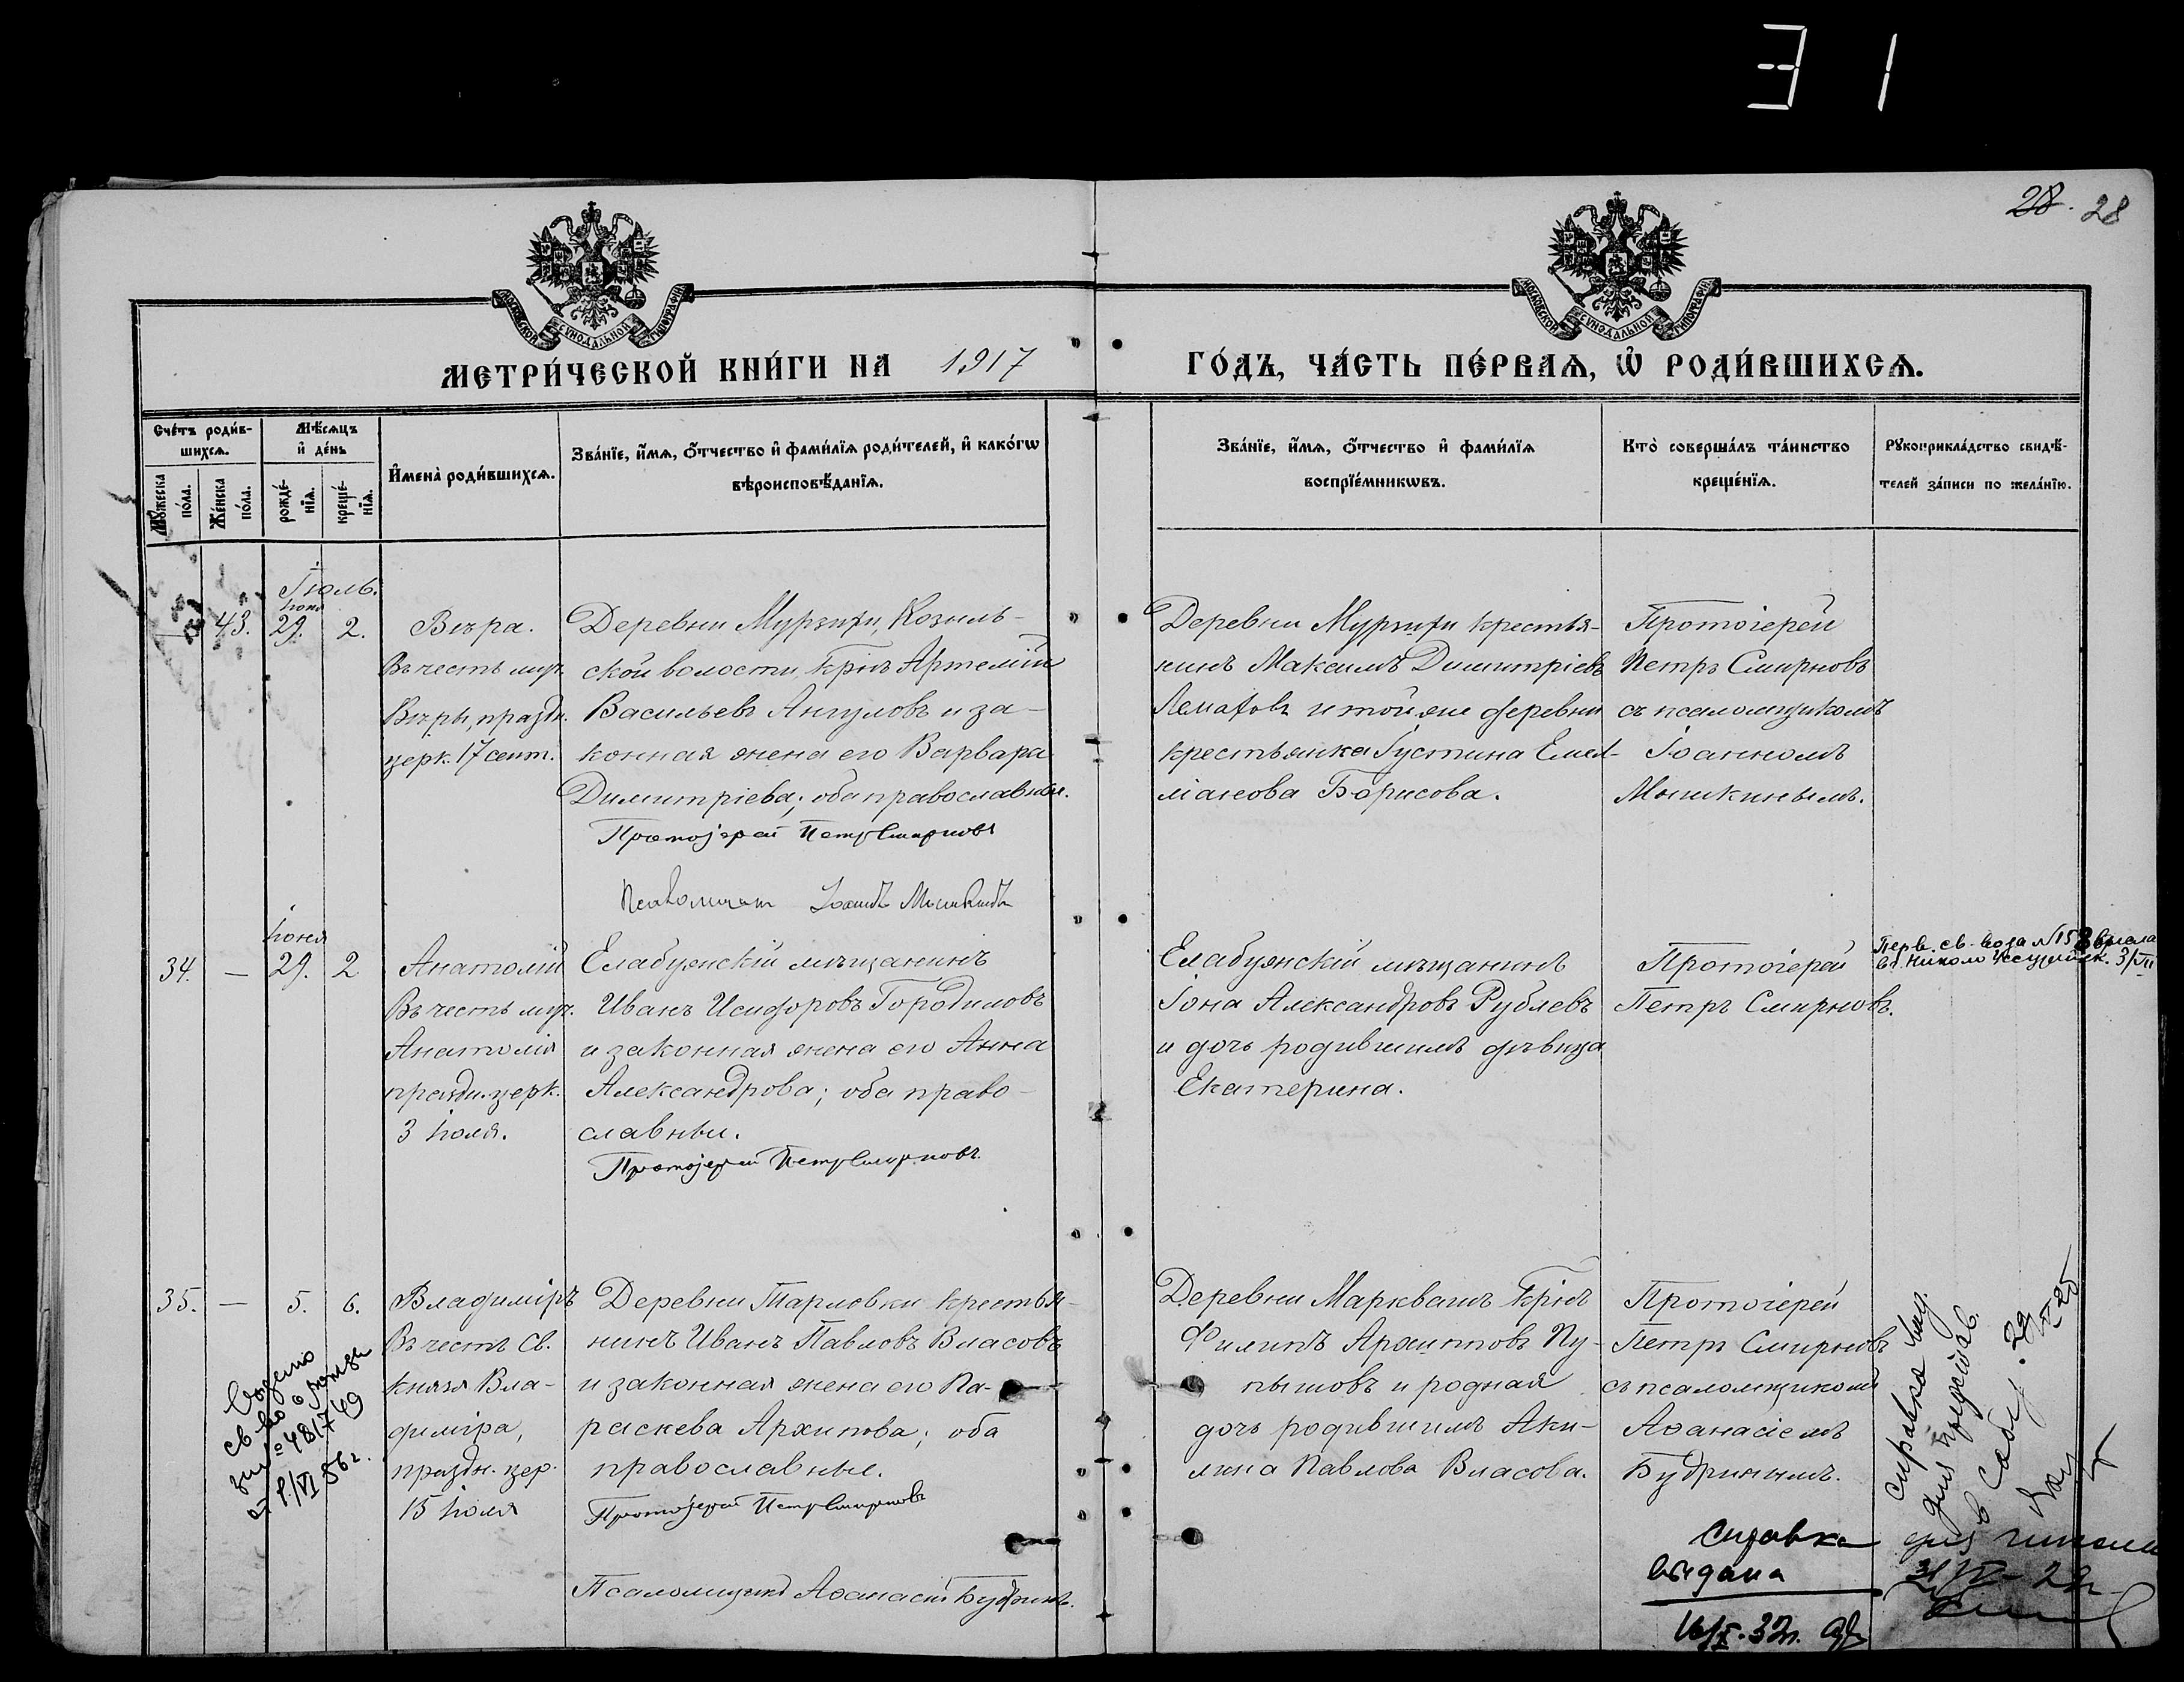 31
28. 28
МОСКОВСКОЙ СѴНОДАЛЬНОЙ ТИПОГРАФІИ
МОСКОВСКОЙ СѴНОДАЛЬНОЙ ТИПОГРАФІИ
МЕТРИ́ЧЕСКОЙ КНИ́ГИ НА 1917
ГО́ДЪ, ЧА́СТЬ ПЕ́РВАѦ, Ѡ҆ РОДИ́ВШИХСѦ.
Сче́тъ роди́в-
шихсѧ.
Мꙋ́жеска
по́ла.
Же́нска
по́ла.
Мѣ́сѧцъ
и҆ де́нь
рожде́-
нїѧ.
креще́-
нїѧ.
И҆мена̀ роди́вшихсѧ.
Зва́нїе, и҆́мѧ, ѻ҆́тчество и҆ фами́лїѧ роди́телей, и҆ како́гѡ
вѣроисповѣ́данїѧ.
Зва́нїе, и҆́мѧ, ѻ҆́тчество и҆ фами́лїѧ
воспрїе́мникѡвъ.
Кто̀ соверша́лъ та́инство
креще́нїѧ.
Рꙋкоприкла́дство свидѣ́-
телей за́писи по жела́нїю.
Іюль.
іюня
43. 29. 2.
Вѣра.
Въ честь муч.
Вѣры, праздн.
церк. 17 сент.
Деревни Мурзихи, Козиль-
ской волости, крнъ Артемій
Васильевъ Ангуловъ и за-
конная жена его Варвара
Димитріева; оба православные.
Протоіерей Петръ Смирновъ
Псаломщикъ Іоаннъ Мышкинъ
Деревни Мурзихи крестья-
нинъ Максимъ Димитріевъ
и той же деревни
крестьянка Іустина Емел-
ьянова Борисова.
Протоіерей
Петръ Смирновъ
съ псаломщикомъ
Іоанномъ
Мышкинымъ.
іюня
34. — 29. 2
Анатолій
Въ честь муч.
Анатолія
праздн. церк.
3 іюля.
Елабужскій мѣщанинъ
Иванъ Исидоровъ Городиловъ
и законная жена его Анна
Александрова; оба право-
славные.
Протоіерей Петръ Смирновъ
Елабужскій мѣщанинъ
Іона Александровъ Рублевъ
и дочь родившимъ дѣвица
Екатерина.
Протоіерей
Петръ Смирновъ.
35. — 5. 6.
Владиміръ
Въ честь Св.
князя Вла-
диміра,
праздн. цер.
15 іюля
Деревни Тарловки крестья-
нинъ Иванъ Павловъ Власовъ
и законная жена его Па-
раскева Архипова; оба
православные.
Протоіерей Петръ Смирновъ
Псаломщикъ Аѳанасій Будринъ.
Деревни Маркваши крнъ
Филиппъ Архипповъ Пу-
пышовъ и родная
дочь родившимъ Аки-
лина Павлова Власова.
Протоіерей
Петръ Смирновъ
съ псаломщикомъ
Аѳанасіемъ
Будринымъ.
справка
для
справка
выдана
16/X.32г.